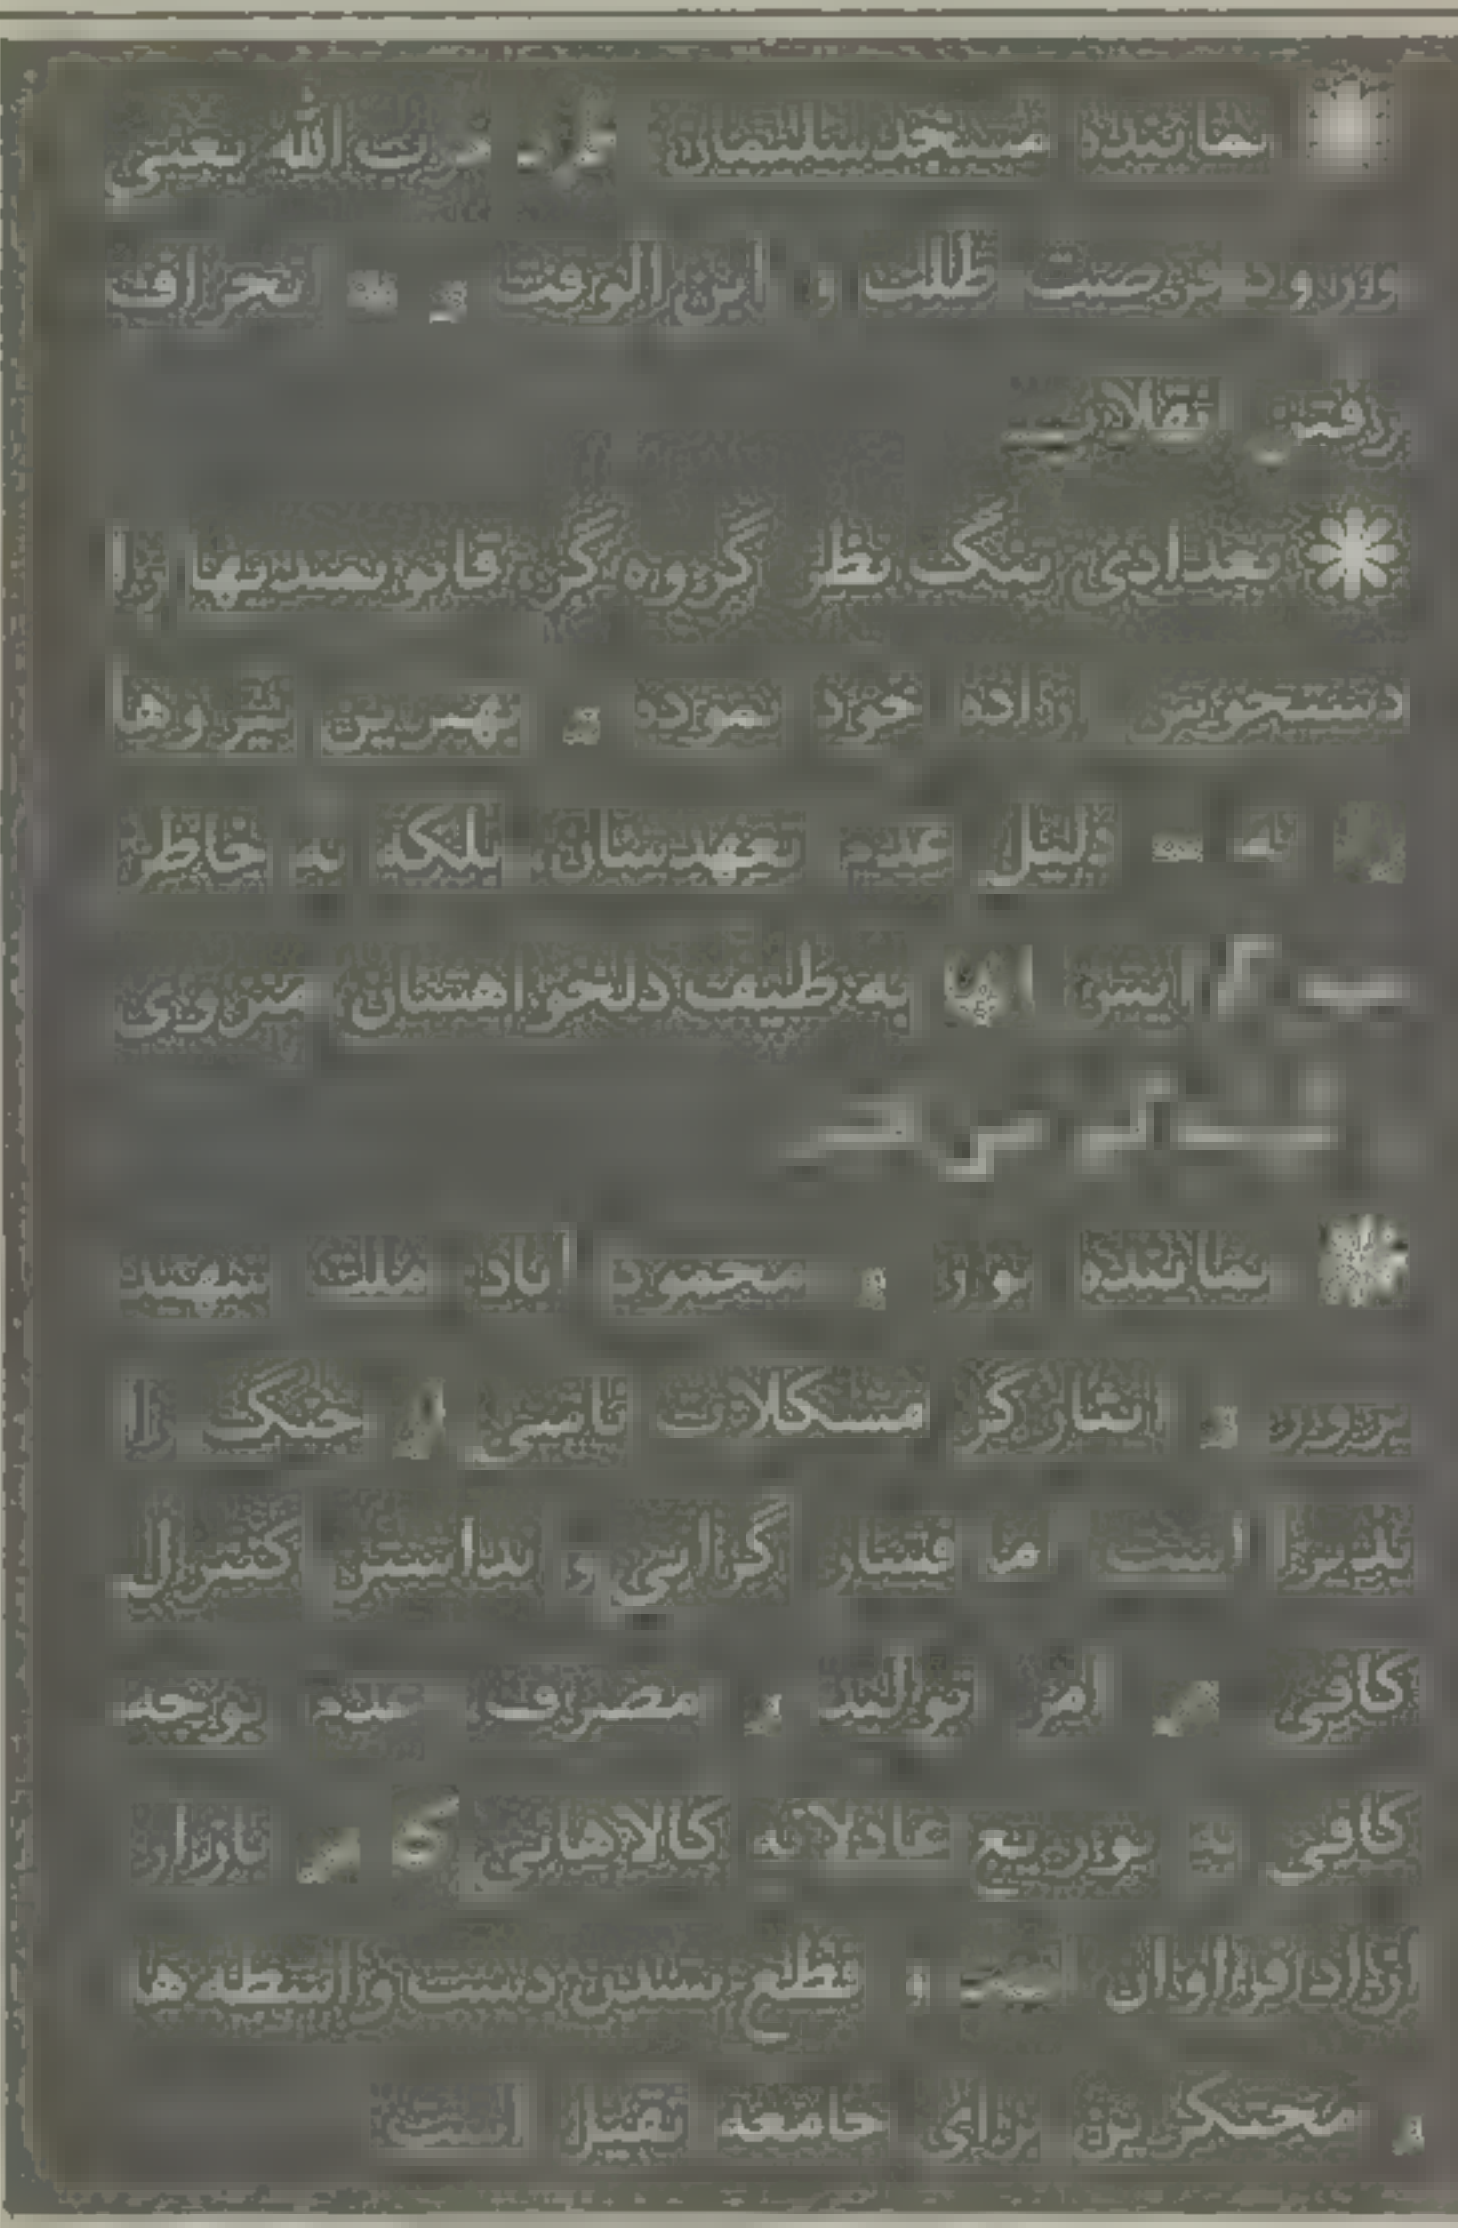 نماینده مسجدسلیمان: حزب الله یعنی
ورود فرصت طلب و ابن الوقت و به انحراف
رفتن انقلاب
تعدادی تنگ نظر گروه گرا قانونمندیها را
دستخوش اراده خود نموده و بهترین نیروها
را نه به دلیل عدم تعهدشان، بلکه به خاطر
به طیف دلخواهشان منزوی
نماینده نور و محمودآباد: ملت شهید
پرور و ایثارگر مشکلات ناشی از جنگ را
پذیرا است اما فشار گرانی و نداشتن کنترل
کافی در امر تولید و مصرف، عدم توجه
کافی به توزیع عادلانه کالاهائی که در بازار
آزاد فراوان است و قطع نشدن دست واسطه ها
و محتکرین برای جامعه ثقیل است